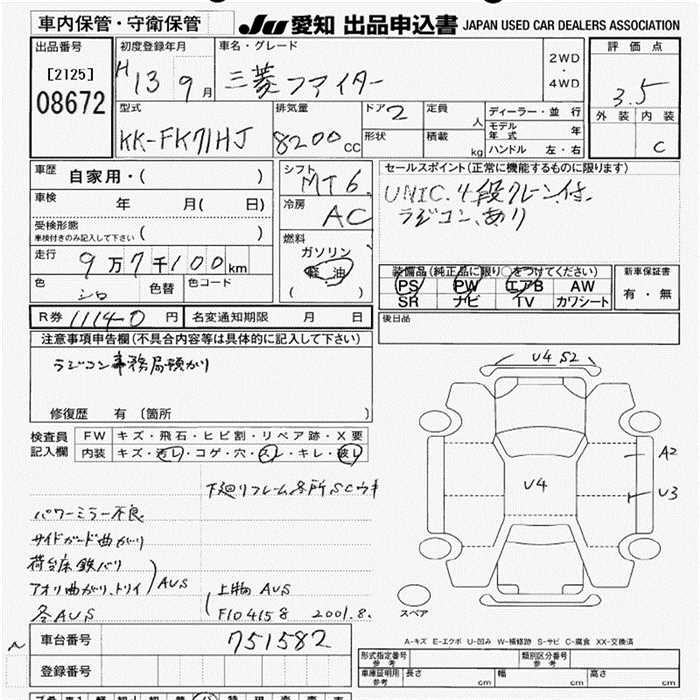 車内保管・守衛保管
JU 愛知 出品申込書 JAPAN USED CAR DEALERS ASSOCIATION
出品番号
[2125]
08672
初度登録年月
H 13 9 月
車名・グレード
三菱 ファイター
2WD
・
4WD
評価点
3.5
外装 内装
C
型式
KK-FK71HJ
排気量
8200 CC
ドア 2
形状
定員 人
積載 kg
ディーラー・並行
モデル年式 年
ハンドル 左・右
車歴
自家用・( )
車検
年 月( 日)
受検形態
車検付きのみ記入して下さい ( )
走行
9万7千100km
色
シロ
色替
色コード
シフト
MT6
冷房
AC
燃料
ガソリン
軽油
( )
セールスポイント(正常に機能するものに限ります)
UNIC.4段クレーン付.
ラジコン.あり
装備品(純正品に限り○をつけてください)
PS PW エアB AW
SR ナビ TV カワシート
新車保証書
有・無
R券 11140 円
名変通知期限 月 日
後日品
注意事項申告欄(不具合内容等は具体的に記入して下さい)
ラジコン事務局預かり
修復歴 有〔箇所 〕
検査員
記入欄
FW キズ・飛石・ヒビ割・リペア跡・X要
内装 キズ・汚レ・コゲ・穴・スレ・キレ・破レ
下廻りフレーム各所SCウキ
パワーミラー不良
サイドガード曲がり
荷台床鉄バリ
アオリ曲がり、トリイ)AUS
各AUS
上物AUS
F104158 2001.8.
U4 S2
A2
U3
U4
スペア
A-キズ E-エクボ U-凹み W-補修跡 S-サビ C-腐食 XX-交換済
車台番号
751582
登録番号
形式指定番号
参考
類別区分番号
参考
車庫証明用
参考
長さ cm
幅 cm
高さ cm